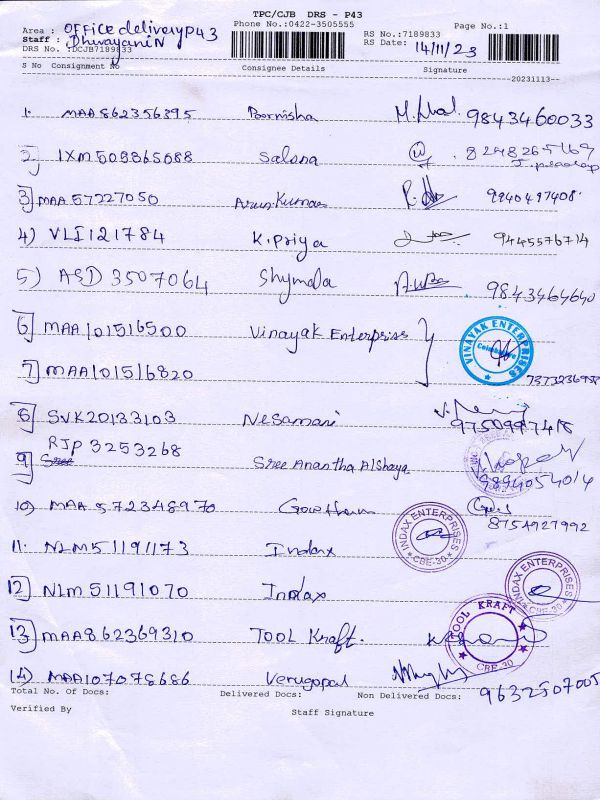 TPC/CJB DRS - P43
Phone No.:0422-3505555
Page No.:1
Area : OFFice delivery P43
Staff : Dhivayani N
DRS No. :DCJB7189833
RS No.:7189833
RS Date: 14/11/23
S No Consignment No Consignee Details Signature
20231113
1. MAA862356395 Bornisha 9843460033
2] IXM509865688 Salona 8248265169
3] MAA57227050 Arun Kumar 9940497408
4) VLI121784 K.Priya 9445576714
5) ASD3507064 Shymala 9843464640
6] MAA101516500 Vinayak Enterprises
VINAYAK ENTERPRISES
Coimbatore
7] MAA101516820
8] SVK20133103 Nesamani 9750997418
RJP3253268
9] Sree Anantha Alshaya 9894054014
10) MAA572348970 Gowtham 8754927992
INDAX ENTERPRISES
CBE-30
11. NLM51191173 Indax
12] NLM51191070 Indax
INDAX ENTERPRISES
CBE-30
13] MAA862369310 TOOL Kraft.
TOOL KRAFT
CBE-30
14) MAA107078686 Verugopal 9632507005
Total No. Of Docs: Delivered Docs: Non Delivered Docs:
Verified By Staff Signature